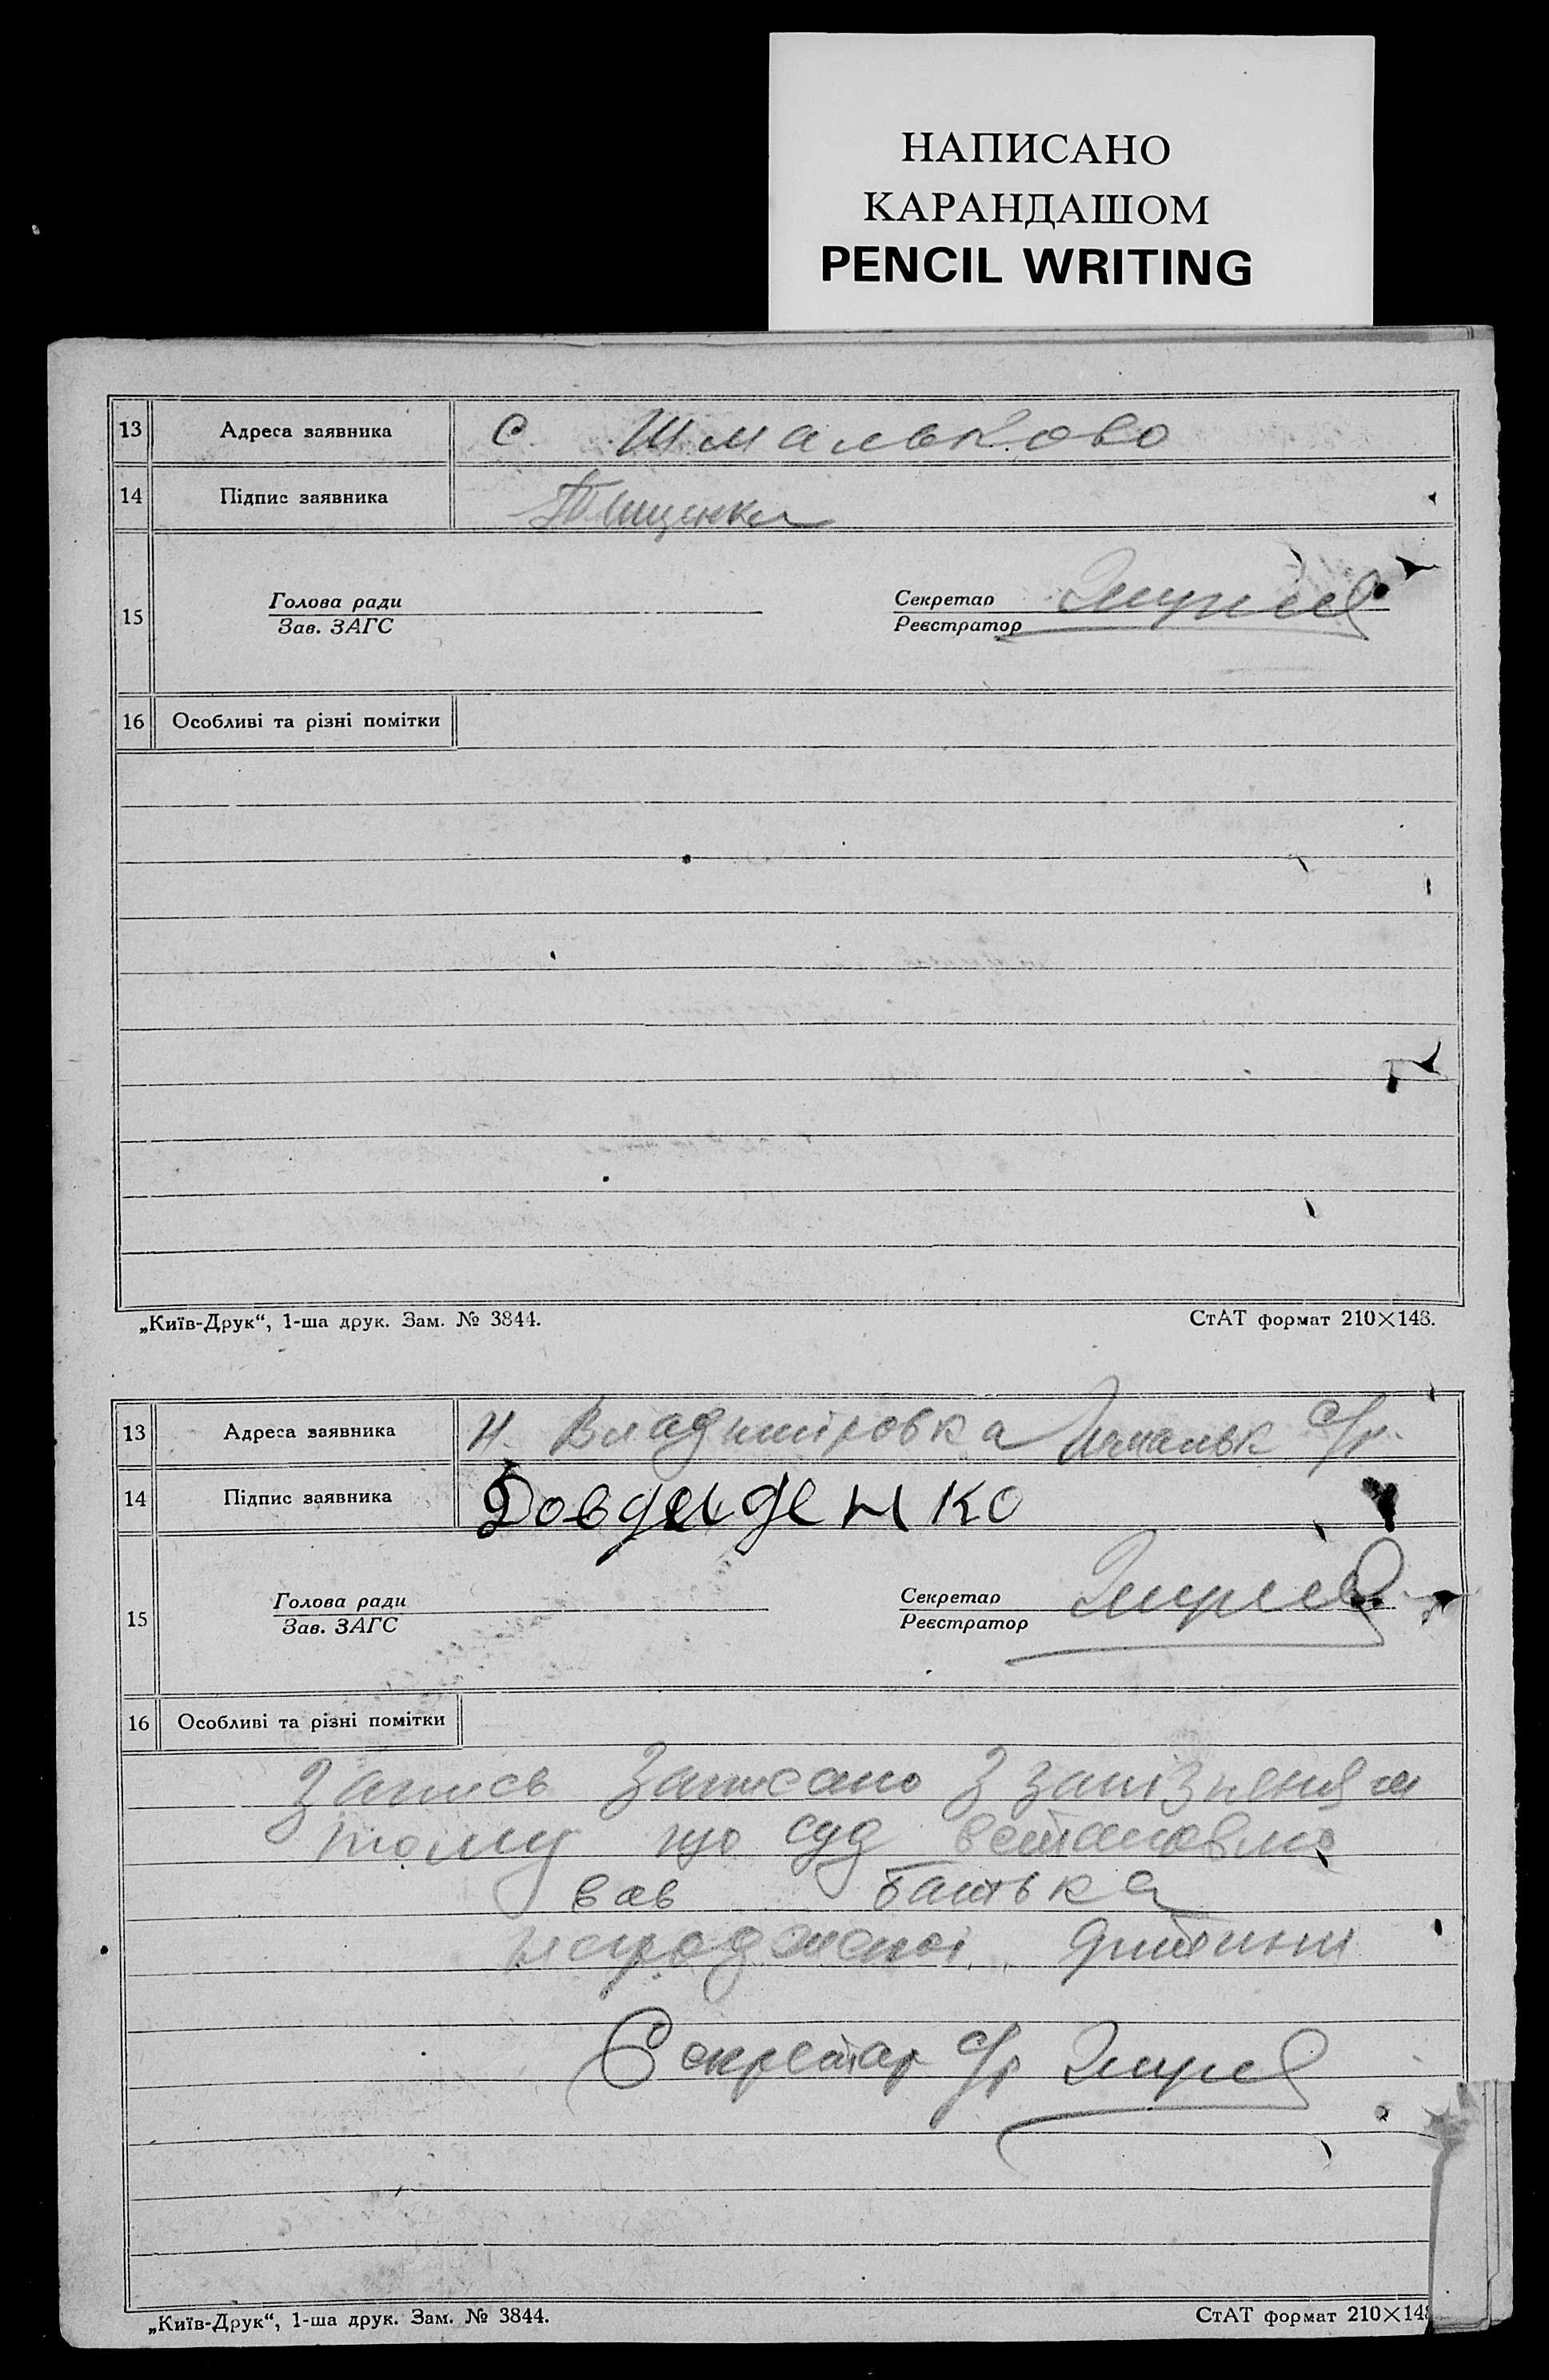 НАПИСАНО
КАРАНДАШОМ
PENCIL WRITING
13 Адреса заявника с. Шмальково
14 Підпис заявника Тищенко
15 Голова ради Секретар
Зав. ЗАГС Реєстратор
16 Особливі та різні помітки
„Київ-Друк“, 1-ша друк. Зам. № 3844. СтАТ формат 210×148.
13 Адреса заявника Н. Владиміровка Шмальк с/р.
14 Підпис заявника Довдиденко
15 Голова ради Секретар
Зав. ЗАГС Реєстратор
16 Особливі та різні помітки
Запись записано з запізненям
тому що суд встановлю
вав батька
нарожденої дитини
Секретар с/р
„Київ-Друк“, 1-ша друк. Зам. № 3844. СтАТ формат 210×148